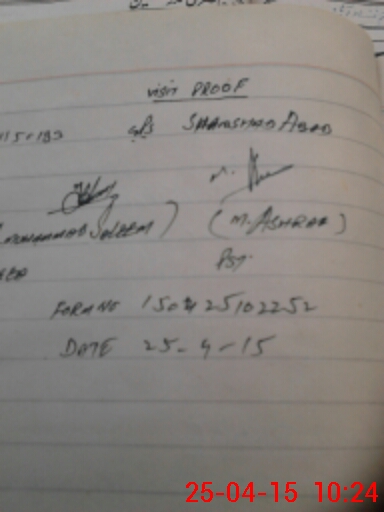 visit PROOF
GPS SHAMSHAD ABAD
(MUHAMMAD SALEEM) (M. ASHRAF)
PST.
FORM NO 150425102252
DATE 25-4-15
25-04-15 10:24